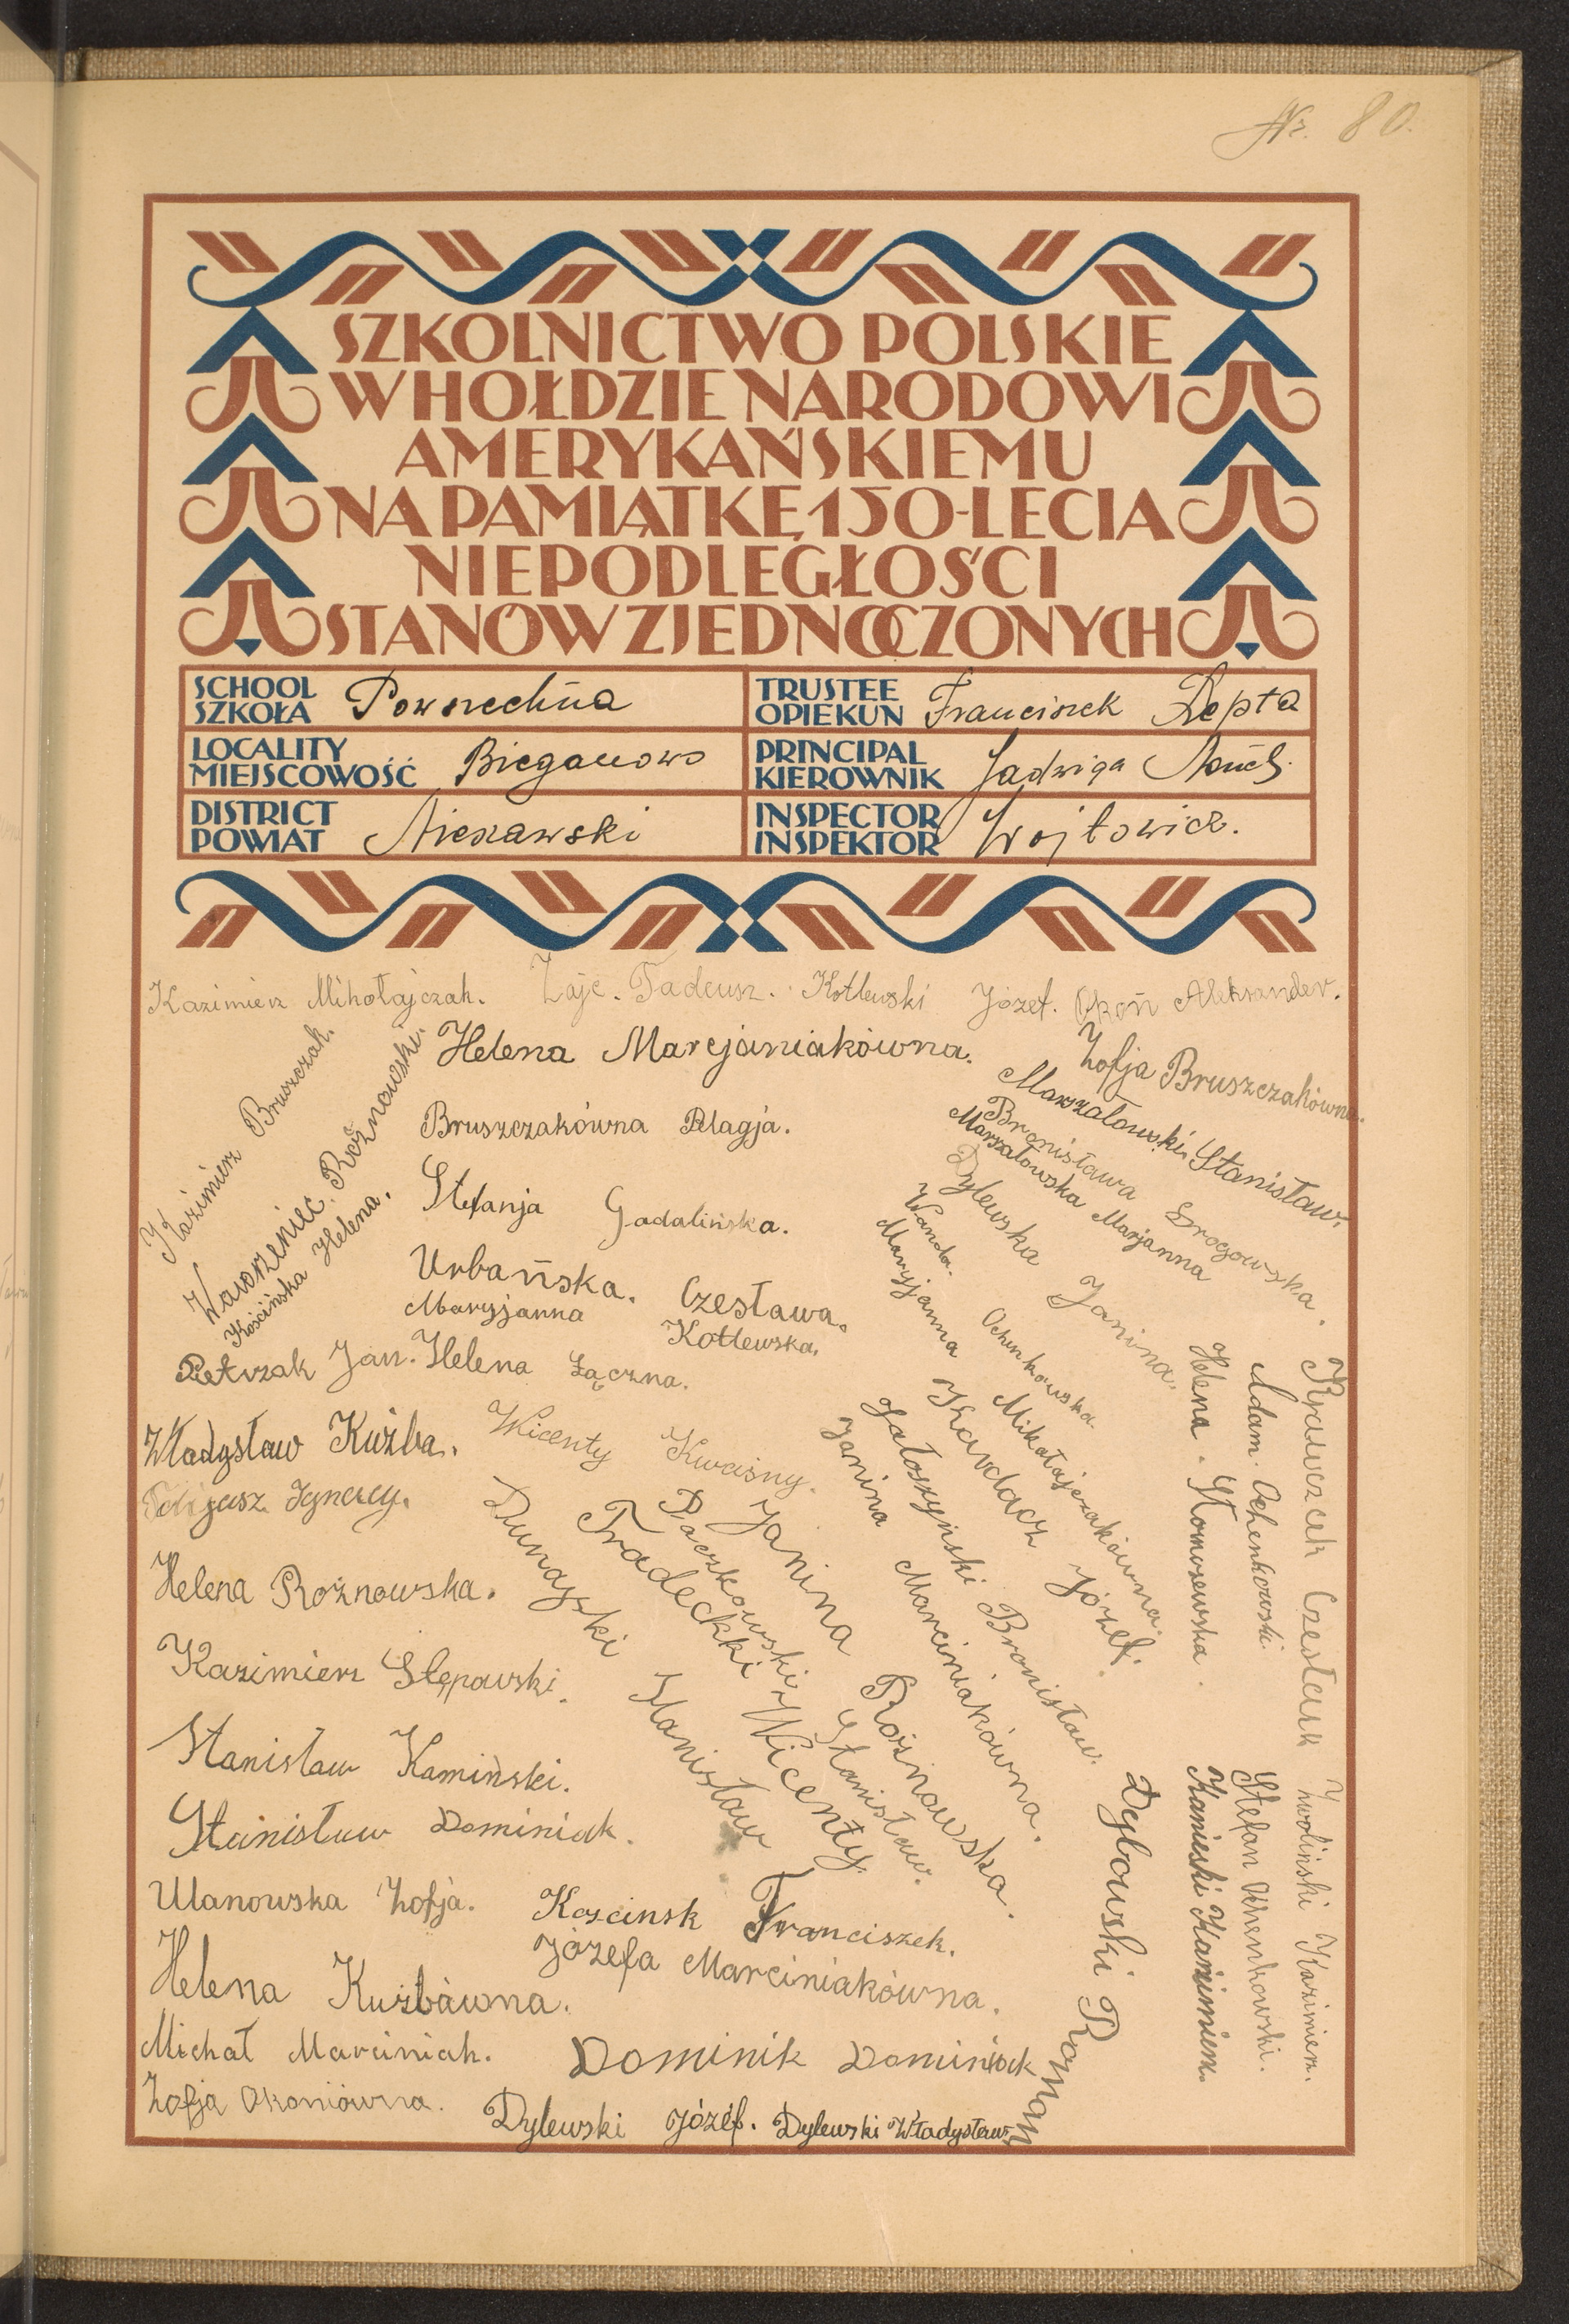 Nr. 80.
SZKOLNICTWO POLSKIE
W HOŁDZIE NARODOWI
AMERYKAŃSKIEMU
NA PAMIĄTKĘ 150-LECIA
NIEPODLEGŁOŚCI
STANÓW ZJEDNOCZONYCH
SCHOOL
SZKOŁA Powszechna
TRUSTEE
OPIEKUN Franciszek Repta
LOCALITY
MIEJSCOWOŚĆ Bieganowo
PRINCIPAL
KIEROWNIK Jadwiga
DISTRICT
POWIAT Nieszawski
INSPECTOR
INSPEKTOR Wojtowicz.
Kazimierz Mikołajczak. Zając. Tadeusz. Kotlewski Józef. Okoń Aleksander.
Kazimierz Bruszczak.
Wawrzeniec. Rożnowski.
Kościńska Helena.
Helena Marcjaniakówna.
Bruszczakówna Pelagja.
Stefanja Gadalińska.
Urbańska. Czesława.
Maryjanna Kotlewska.
Pietrzak Jan. Helena Łączna.
Zofja Bruszczakówna.
Marszałowski Stanisław.
Bronisława Srogowska.
Marszałowska Marjanna
Dylewska Janina.
Wanda. Ochenkowska
Maryjanna Mikołajczakówna.
Kardacz Józef.
Jałoszyński Bronisław.
Janina Marciniakówna.
Helena. Skomoszewska.
Adam. Ochenkowski.
Krawczcek Czesław
Władysław Kuźba.
Wicenty Kwaśny.
Ignacy.
Janina Rożnowska.
Raczkowski Stanisław.
Tradeckki Wicenty.
Dunajski Stanisław
Helena Rożnowska.
Kazimierz Stępowski.
Stanisław Kamiński.
Stanisław Dominiak.
Ulanowska Zofja.
Koscinsk Franciszek.
Józefa Marciniakówna.
Helena Kuźbàwna.
Michał Marciniak.
Dominik Dominiak
Zofja Okoniówna.
Dylewski Józef. Dylewski Władysław.
Dybowski Roman
Kanieski Kazimierz.
Stefan Ochenkowski.
Zwoliński Kazimierz.